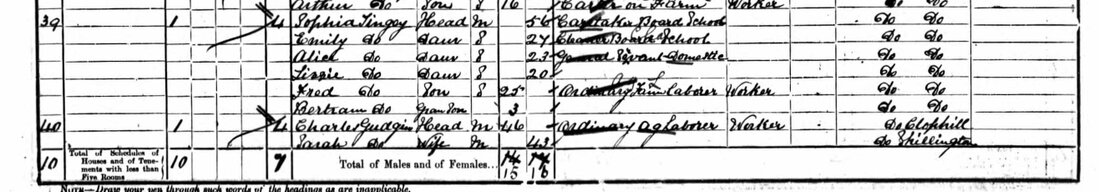 Arthur Do Son S 16 Carter on Farm Worker Do Do
39 1 4 Sophia Tingey Head M 56 Caretaker Board School Do Do
Emily Do Daur S 27 Cleaner Board School Do Do
Alice Do Daur S 23 General Servant Domestic Do Do
Lizzie Do Daur S 20 Do Do
Fred Do Son S 25 Ordinary Farm laborer Worker Do Do
Bertram Do Gran Son 3 Do Do
40 1 4 Charles Gudgin Head M 46 Ordinary Ag Laborer Worker Do Clophill
Sarah Do Wife M 43 Do Shillington
10 Total of Schedules of Houses and of Tenements with less than Five Rooms 10 7 Total of Males and of Females... 14 17
15 16
NOTE—Draw your pen through such words of the headings as are inapplicable.